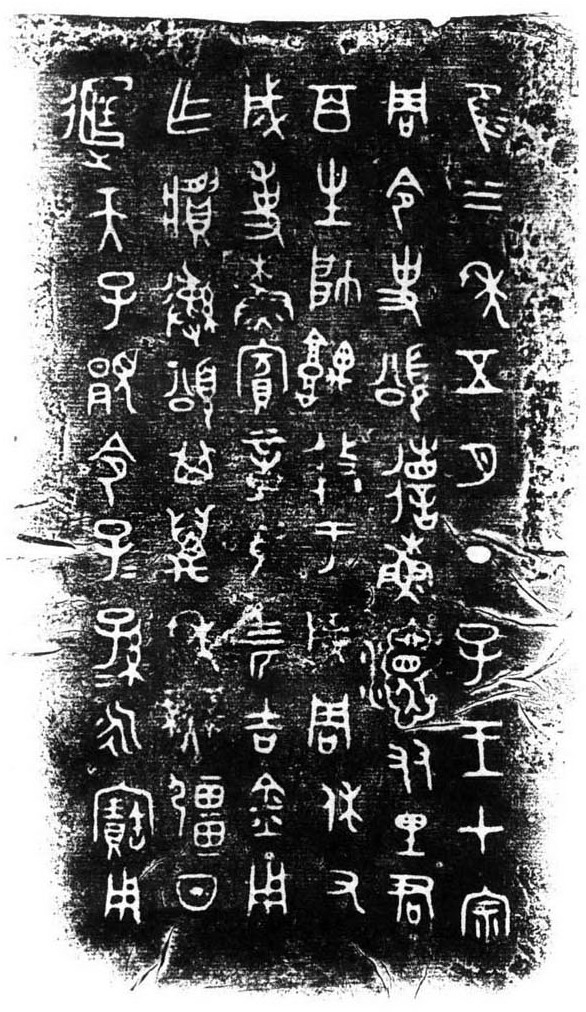 隹三年五月丁子王才宗
周令史頌省穌友里君
百生帥堣盩于成周休又
成事穌賓章馬四匹吉金用
乍䵼彝頌其萬年無疆日
天子顯令子子孫孫永寶用